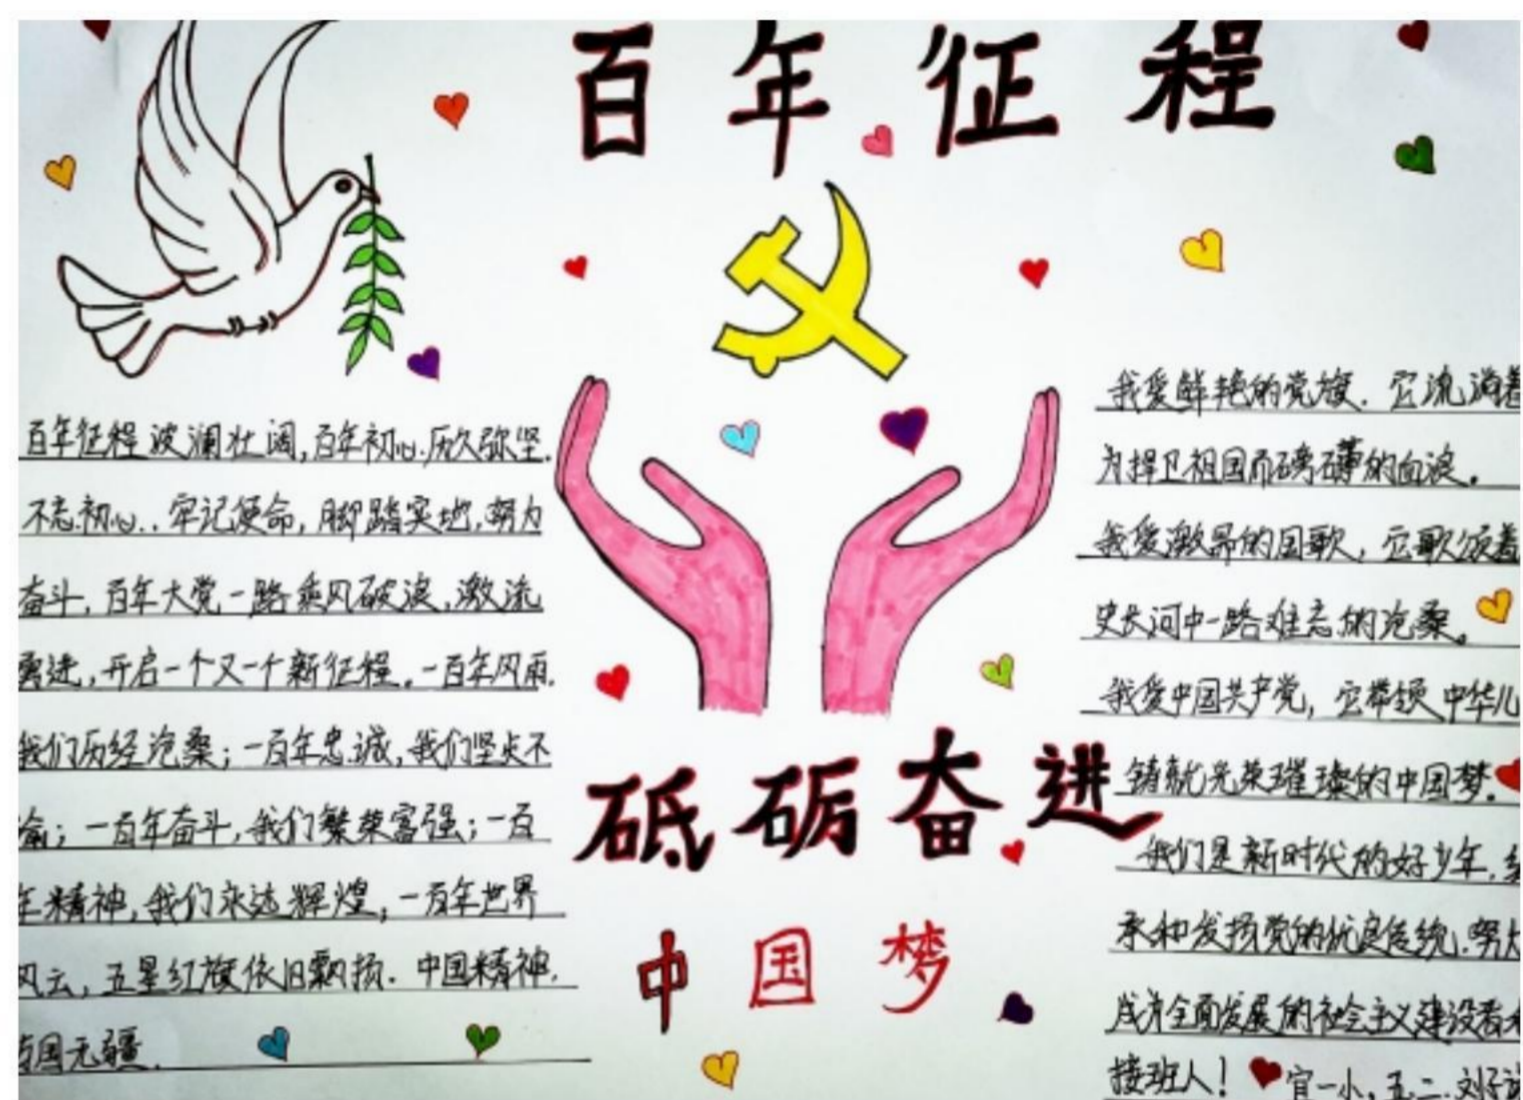 百年征程
百年征程波澜壮阔,百年初心.历久弥坚.
不忘初心.牢记使命,脚踏实地,努力
奋斗,百年大党一路乘风破浪,激流
勇进,开启一个又一个新征程.一百年风雨.
我们历经沧桑;一百年忠诚,我们坚贞不
渝;一百年奋斗,我们繁荣富强;一百
年精神,我们永远辉煌,一百年世界
风云,五星红旗依旧飘扬.中国精神.
国无疆.
砥砺奋进
中国梦
我爱鲜艳的党旗.它流淌着
为捍卫祖国而磅礴的血浪。
我爱激昂的国歌,它歌颂着
史长河中一路难忘的沧桑。
我爱中国共产党,它带领中华儿
铸就光荣璀璨的中国梦.
我们是新时代的好少年.
承和发扬党的优良传统.努力
成为全面发展的社会主义建设者
接班人!
宜一小,五.二.刘子